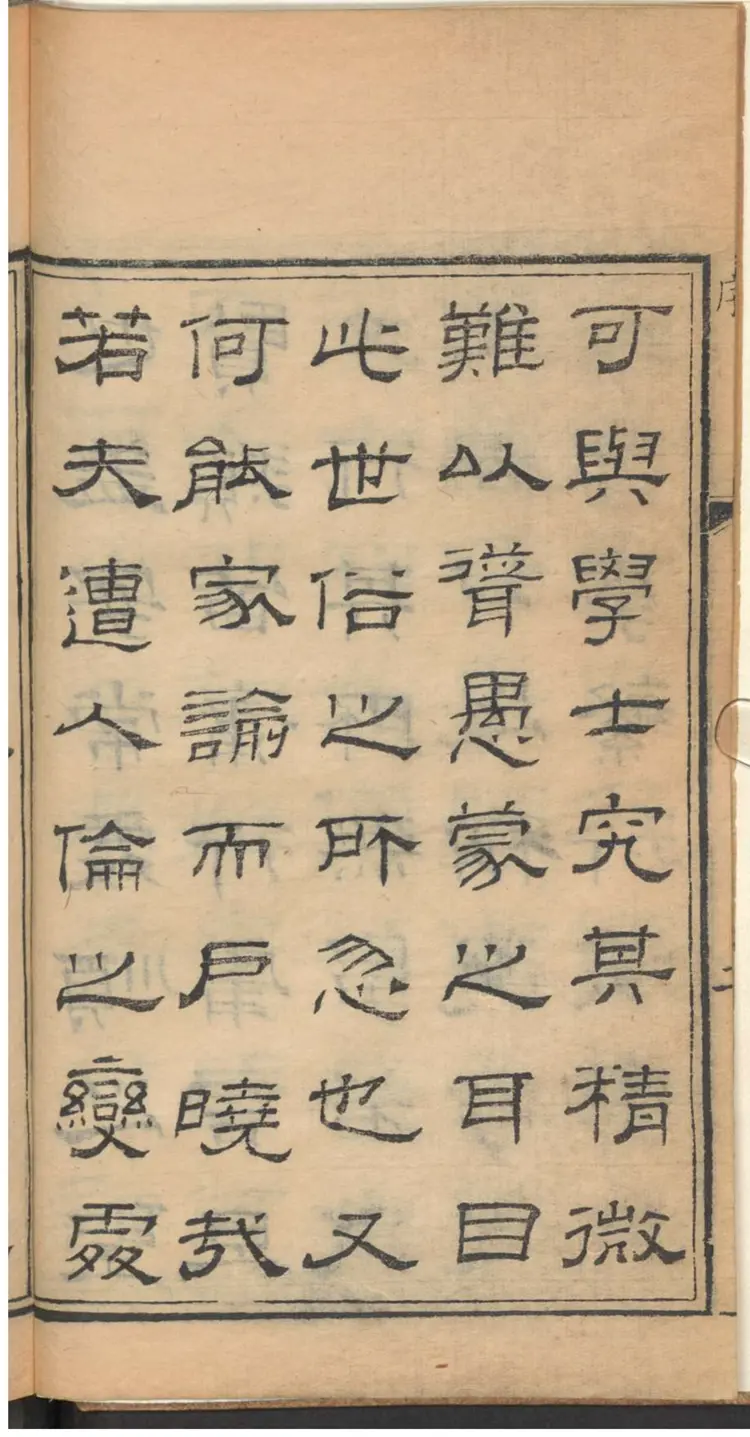 序
二
可與學士究其精微
難以聳愚蒙之耳目
此世俗之所忽也又
何能家諭而戶曉哉
若夫遭人倫之變處